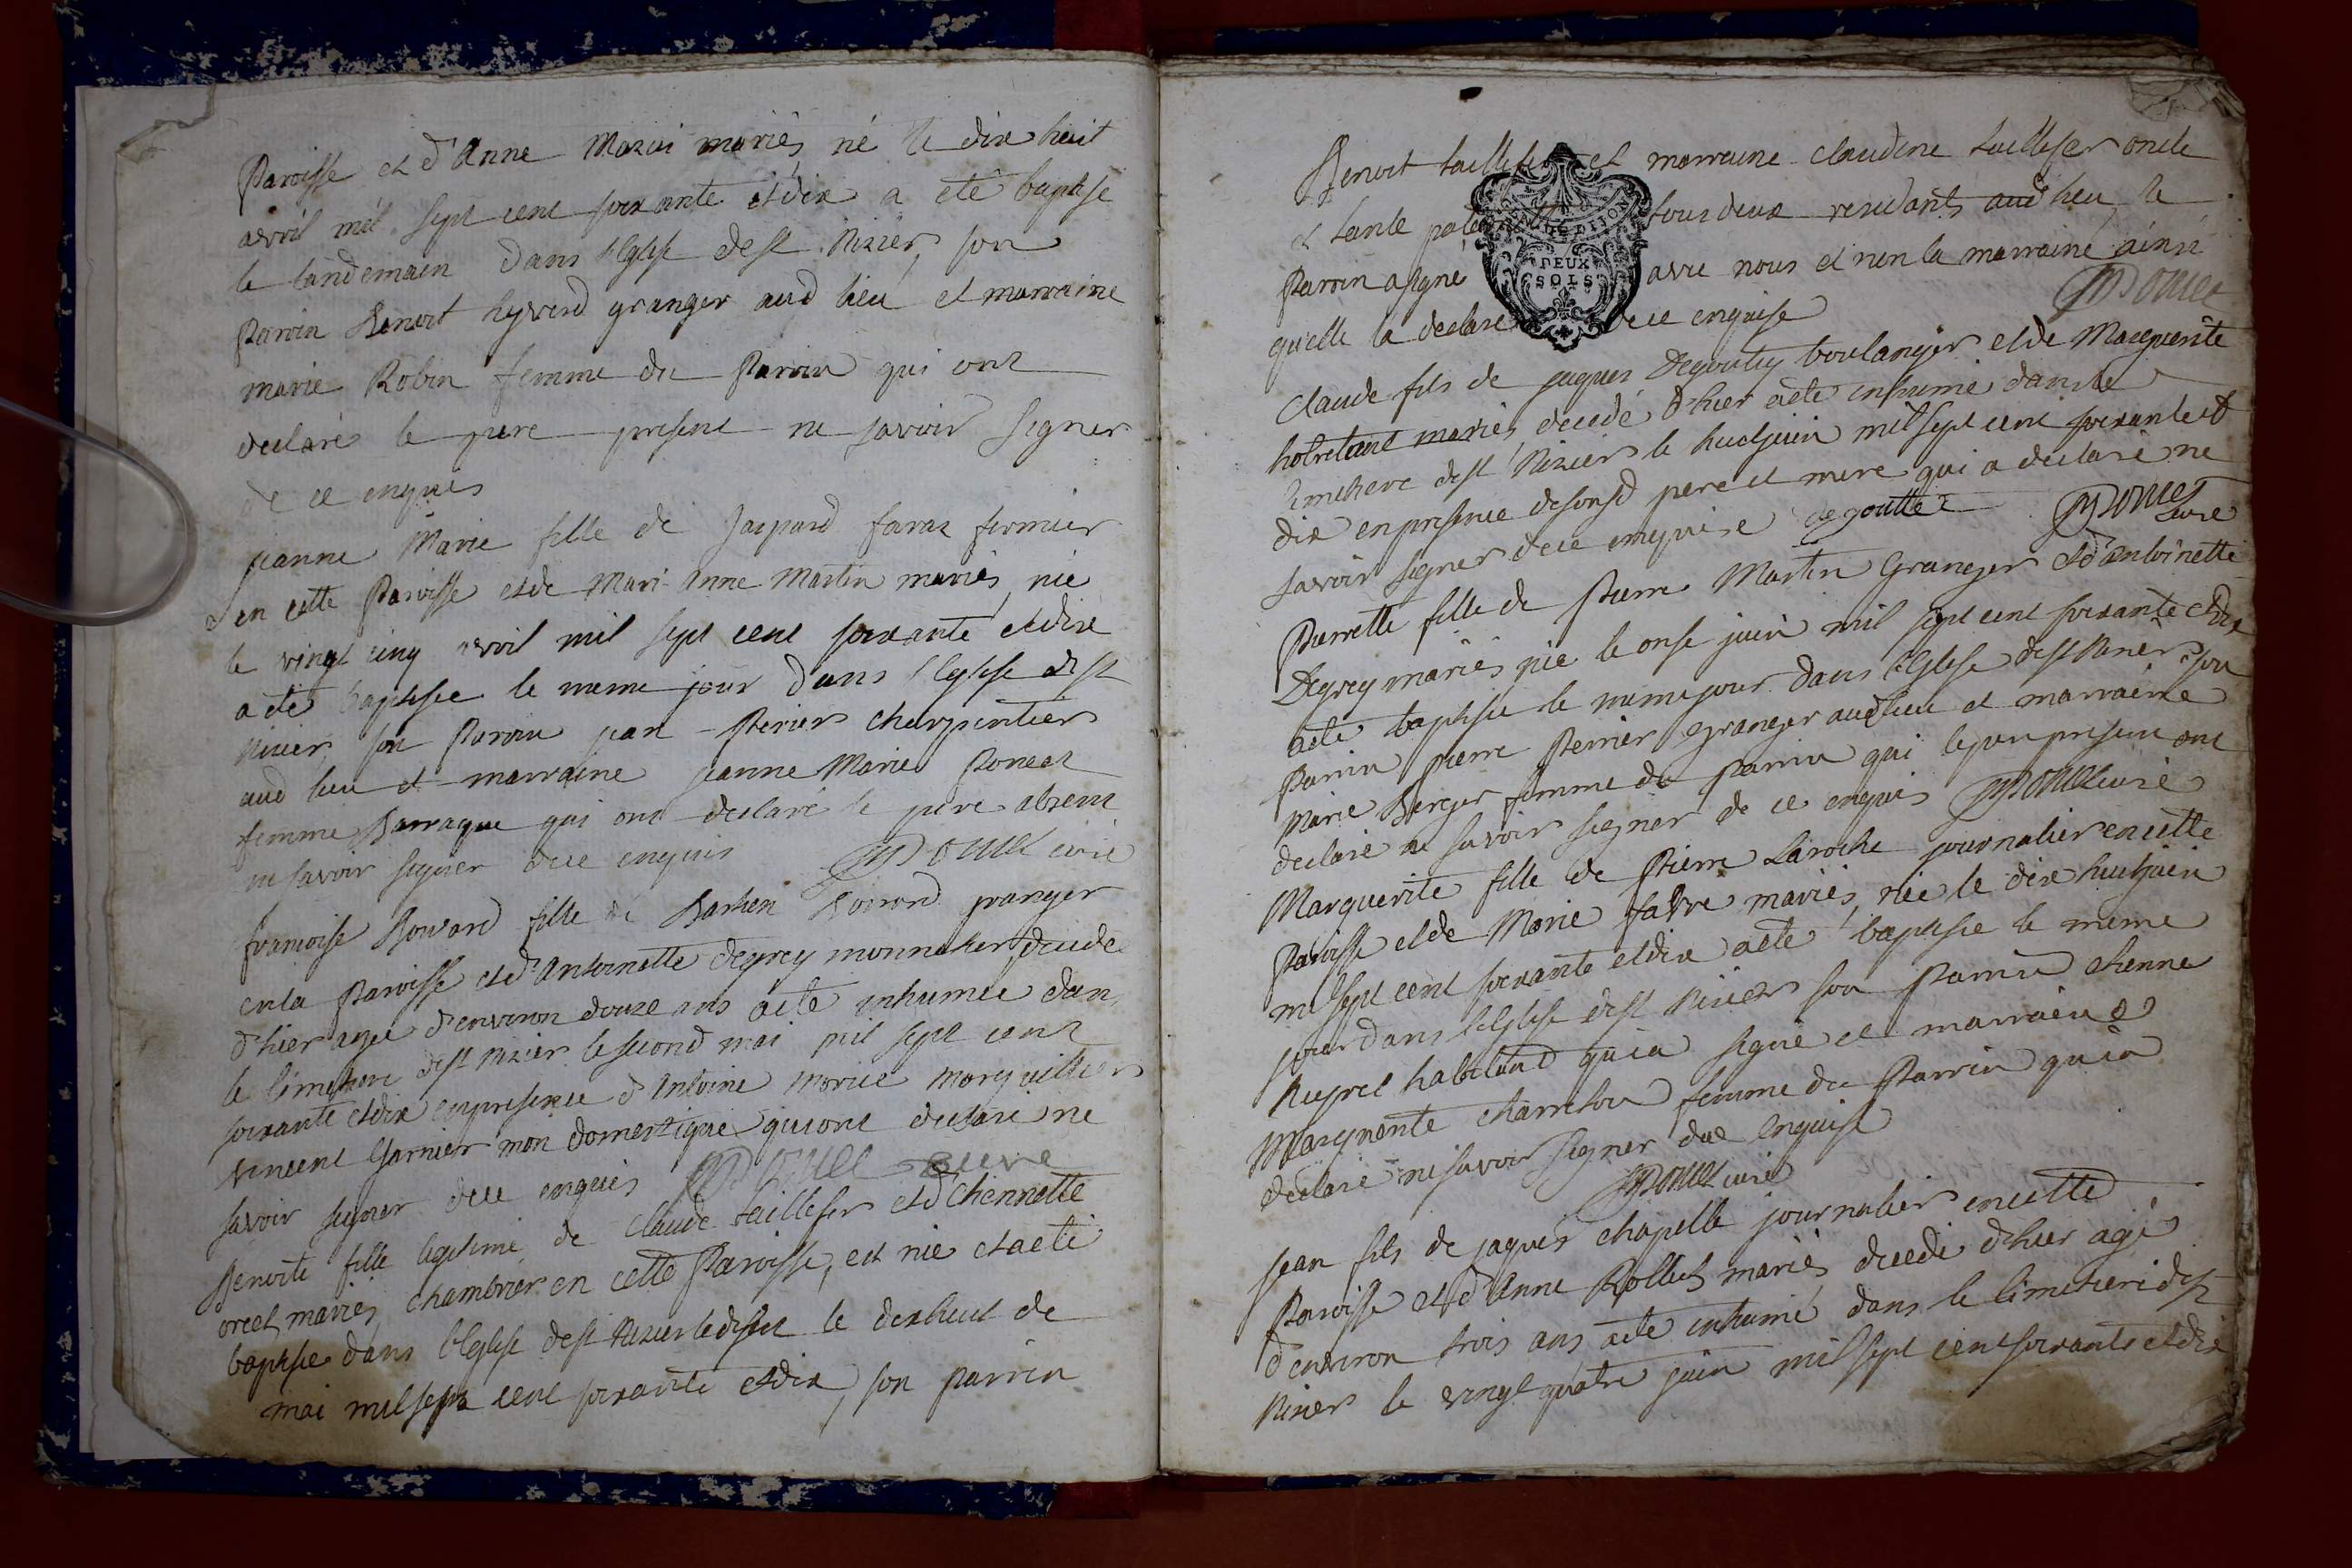 Paroisse et d'Anne Mazui mariés, né le dix huit
avril mil sept cent soixante et dix a eté baptisé
le landemain dans l'Eglise de st. Nizier, son
Parrin Benoit hyverd granger aud lieu et marraine
marie Robin femme du Parrin qui ont
declaré le pere present ne savoir signer
de ce enquis
jeanne Marie fille de Jaspard faraz fermier
en cette Paroisse et de Mari-Anne Martin mariés, née
le vingt cinq avril mil sept cent soixante et dix
a eté baptisée le meme jour dans l'Eglise de st
Nizier, son Parrin jean Perier charpentier
aud lieu et marraine jeanne Marie Poncet
femme Barraque qui ont declaré le pere absent
ne savoir signer de ce enquis Poncet curé
francoise Bonard fille de Bastien Bonard granger
en la Paroisse et d'Antoinette degrey monnatier decedé
d'hier agée d'environ douze ans a eté inhumée dans
le Cimetiere de st Nizier le second mai mil sept cent
soixante et dix en presence d'Antoine morice marguillier
vincent Garnier mon domestique qui ont declaré ne
savoir signer de ce enquis Poncet curé
Benoite fille legitime de Claude taillefer et d'Etiennette
orcel mariés, chambrier en cette Paroisse, est née et a eté
baptisée dans l'Eglise de st Nizier le desert le dix huit de
mai mil sept cent soixante et dix, son parrin
Benoit taillefer et marraine claudine taillefer oncle
et tante tous deux residants aud lieu, le
Parrin a signé avec nous et non la marraine ainsi
qu'elle la declaré de ce enquise Poncet
DEUX
SOLS
Claude fils de jaques Degoutty boulanger et de Marguerite
mariés, decedé d'hier a eté inhumé dans le
Cimetiere de st Nizier le huit juin mil sept cent soixante et
dix en presence de sousd pere et mere qui a declaré ne
savoir signer de ce enquise degoutte Poncet curé
Pierrette fille de Pierre Martin Granger et d'antoinette
Degrey mariés, née le onse juin mil sept cent soixante et dix
a eté baptisée le meme jour dans l'Eglise de st Nizier, son
Parrin pierre Perrier granger aud lieu et marraine
Marie Berger femme du parrin qui le pere present ont
declaré ne savoir signer de ce enquis Poncet curé
Marguerite fille de Pierre Laroche journalier en cette
Paroisse et de Marie favre mariés, née le dix huit juin
mil sept cent soixante et dix a eté baptisée le meme
jour dans l'Eglise de st Nizier son Parrin etienne
habitand qui a signé et marraine
Marguerite femme du Parrin qui a
declaré ne savoir signer de ce enquise
Poncet curé
jean fils de jaques chapelle journalier en cette
Paroisse et d'Anne Rollet mariés decedé d'hier agé
d'environ trois ans a eté inhumé dans le Cimetiere de st
Nizier le vingt quatre juin mil sept cent soixante et dix